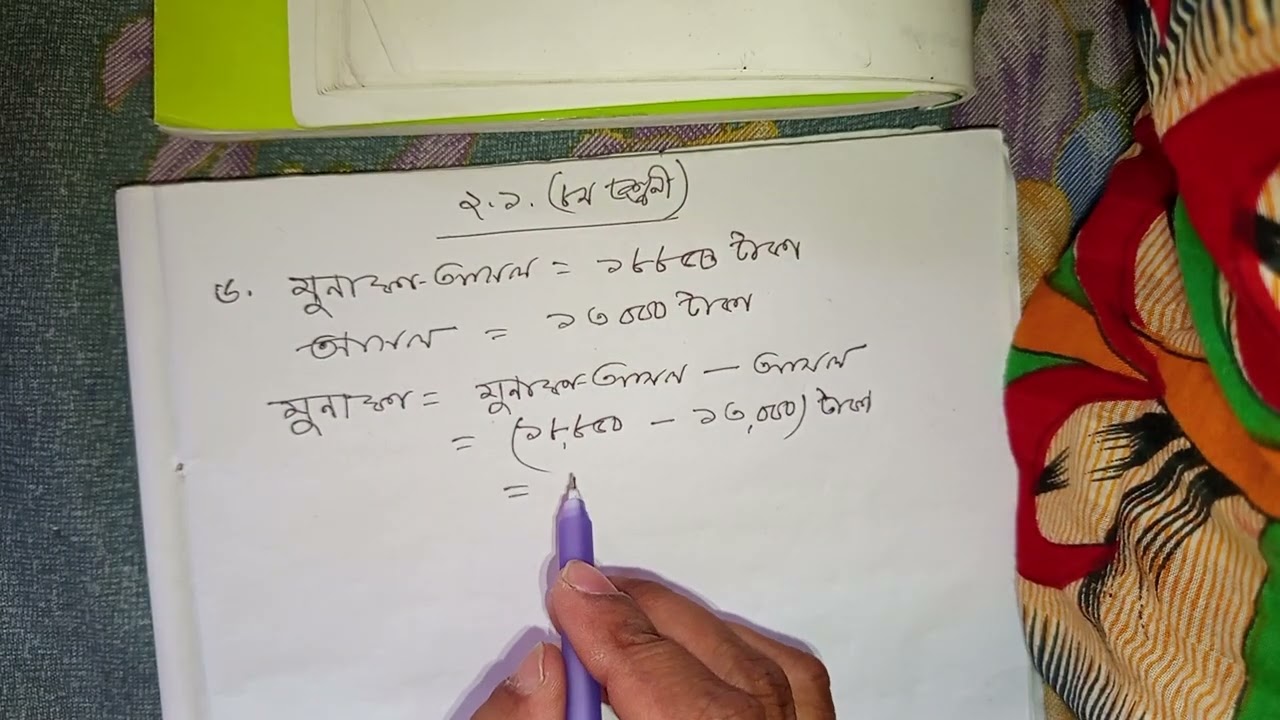 ২.১. (৮ম শ্রেণী)
৬. মুনাফা-আসল = ১৮৮৫০ টাকা
আসল = ১৩০০০ টাকা
মুনাফা = মুনাফা-আসল — আসল
= (১৮,৮৫০ — ১৩,০০০) টাকা
=